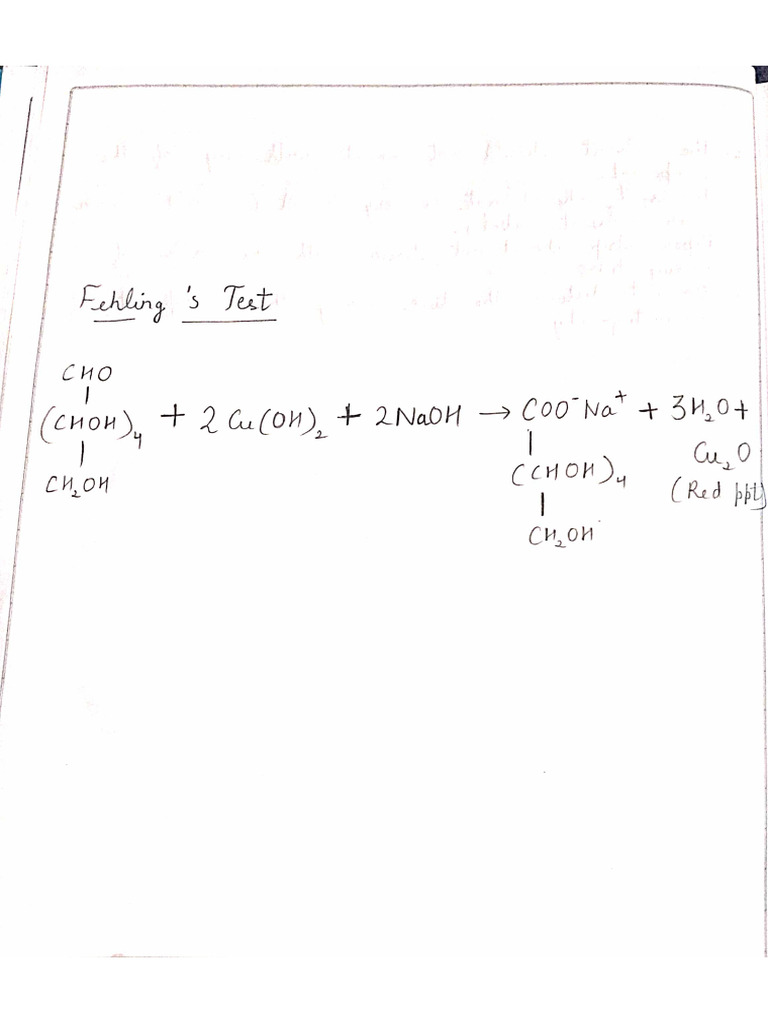 Fehling's Test
CHO
(CHOH)₄ + 2Cu(OH)₂ + 2NaOH → COO⁻Na⁺ + 3H₂O +
CH₂OH
(CHOH)₄
CH₂OH
Cu₂O
(Red ppt)